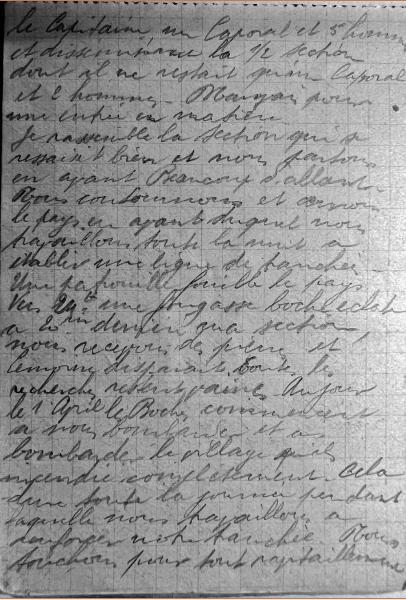 le Capitaine, un Caporal et 5 hommes
et dissémine la 1/2 section
dont il ne restait qu'un Caporal
et 2 hommes. Mauvais pour
une entrée en matière
Je rassemble la section qui se
ressaisit bien et nous partons
en ayant beaucoup d'allant.
Nous contournons et cernons
le pays en avant duquel nous
travaillons toute la nuit a
établir une ligne de tranchée.
Une patrouille fouille le pays
Vers une fougasse boche éclate
a 20m derrière ma section,
nous recevons des pierres et
disparait, toutes les
recherches restent vaines. Au jour
le 1 Avril le Boche commencent
a nous bombarder et a
bombarder le village qu'ils
incendie complètement. Cela
dure toute la journée pendant
laquelle nous travaillons a
renforcer notre tranchée. Nous
touchons pour tout ravitaillement